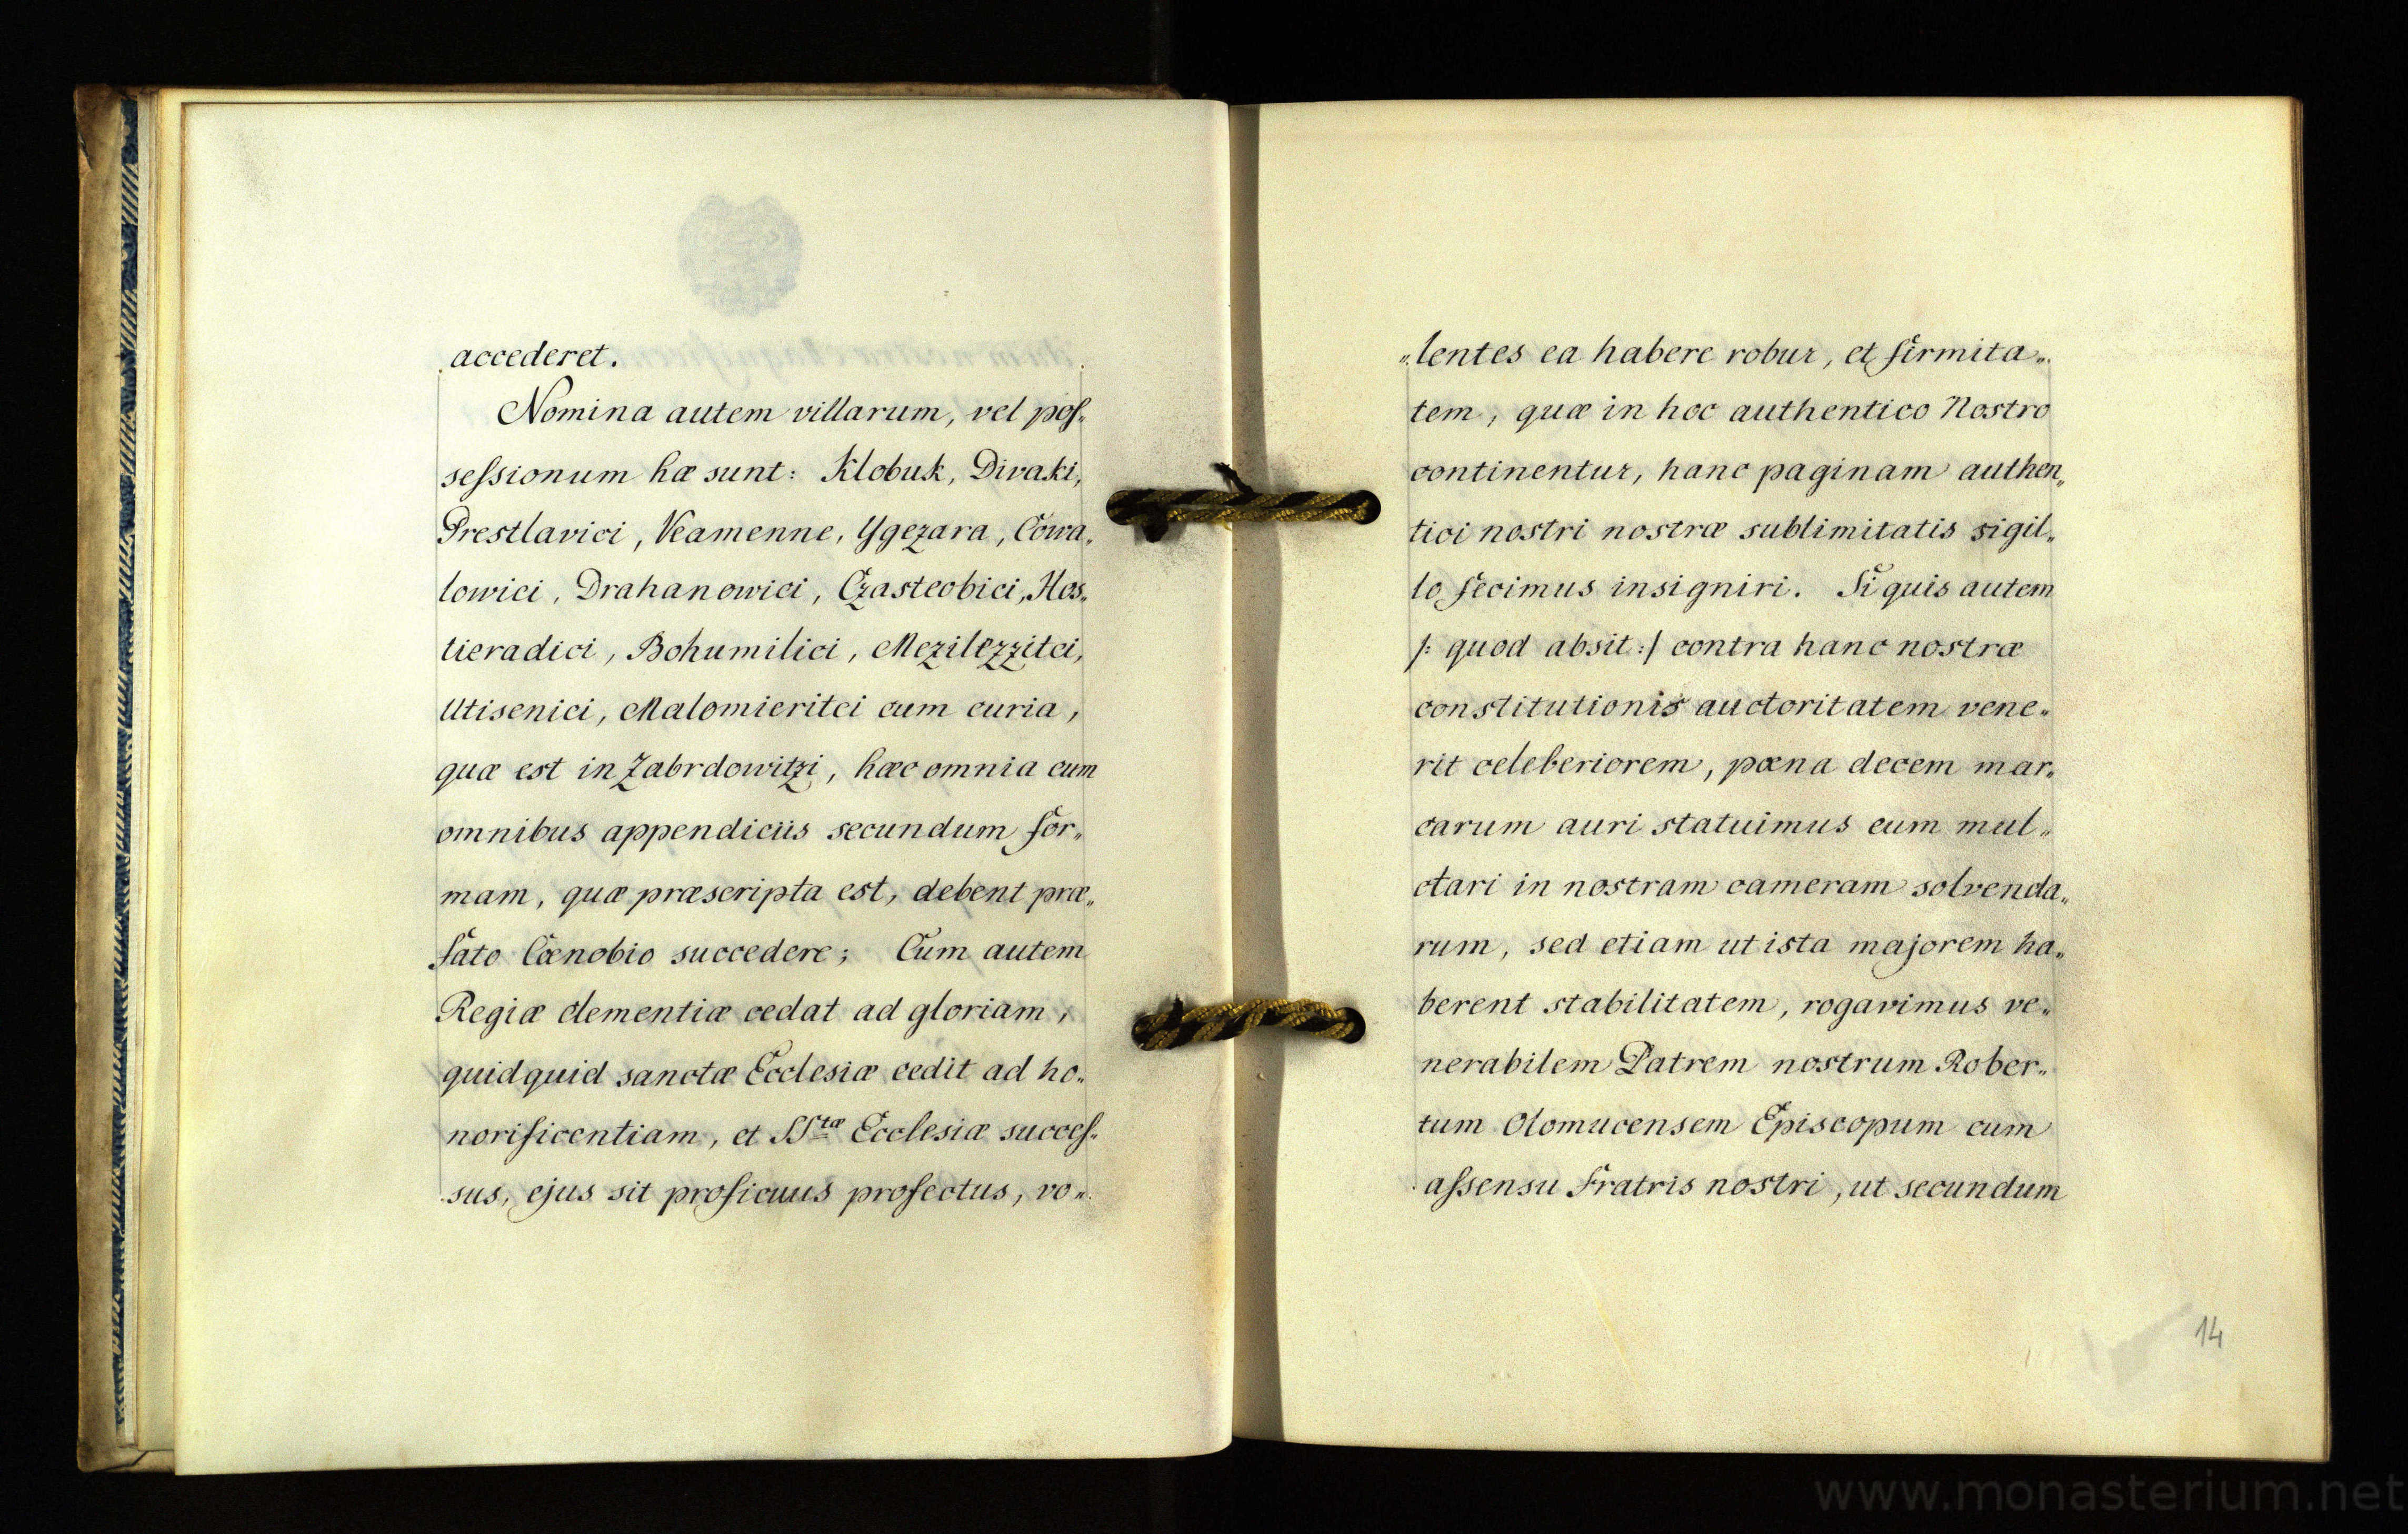 accederet.
Nomina autem villarum, vel pos„
sessionum hæ sunt: Klobuk, Divaki,
Prestlavici, Veamenne, Ygezara, Cowa„
lowici, Drahanowici, Czasteobici, Hos„
tieradici, Bohumilici, Mezilezzitci,
Utisenici, Malomieritci cum curia,
quæ est in Zabrdowitzi, hæc omnia cum
omnibus appendiciis secundum for„
mam, quæ præscripta est, debent præ„
fato Cœnobio succedere; Cum autem
Regiæ clementiæ cedat ad gloriam,
quidquid sanctæ Ecclesiæ cedit ad ho„
norificentiam, et SStæ Ecclesiæ succes„
sus, ejus sit proficuus profectus, vo„
„lentes ea habere robur, et firmita„
tem, quæ in hoc authentico Nostro
continentur, hanc paginam authen„
tici nostri nostræ sublimitatis sigil„
lo fecimus insigniri. Si quis autem
/: quod absit :/ contra hanc nostræ
constitutionis auctoritatem vene„
rit celeberiorem, pœna decem mar„
carum auri statuimus eum mul„
ctari in nostram cameram solvenda„
rum, sed etiam ut ista majorem ha„
berent stabilitatem, rogavimus ve„
nerabilem Patrem nostrum Rober„
tum Olomucensem Episcopum cum
assensu Fratris nostri, ut secundum
14
www.monasterium.net